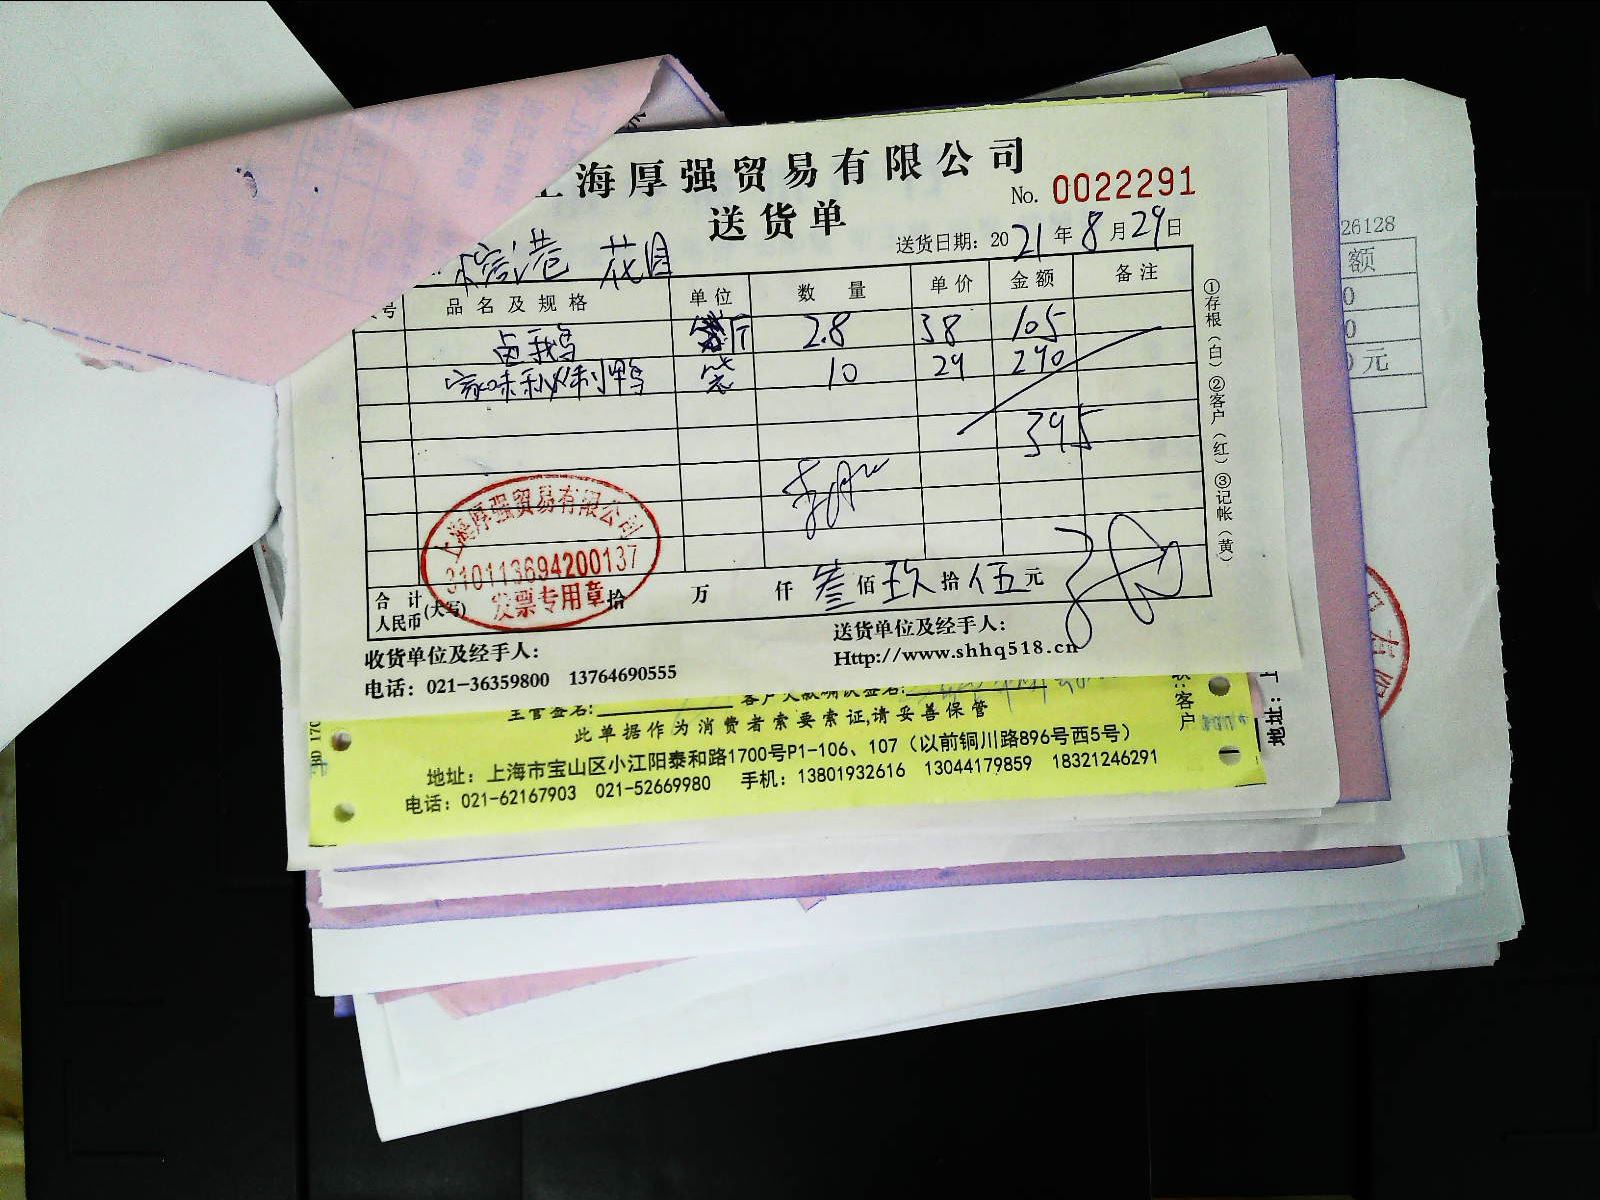 海厚强贸易有限公司
No. 0022291
送货单
送货日期：2021年8月29日
港 花园
号 品名及规格 单位 数量 单价 金额 备注
卤鹅 斤 2.8 38 105
家味秘制鸭 袋 10 29 290
395
上海厚强贸易有限公司
310113694200137
发票专用章
合计
人民币(大写) 拾 万 仟 叁佰玖拾伍元
收货单位及经手人：
送货单位及经手人：
电话：021-36359800 13764690555
Http://www.shhq518.cn
①存根（白）②客户（红）③记帐（黄）
主管签名：
客户欠款确认签名：
此单据作为消费者索要索证,请妥善保管
地址：上海市宝山区小江阳泰和路1700号P1-106、107（以前铜川路896号西5号）
电话：021-62167903 021-52669980 手机：13801932616 13044179859 18321246291
客户
地址：
26128
额
0
0
元